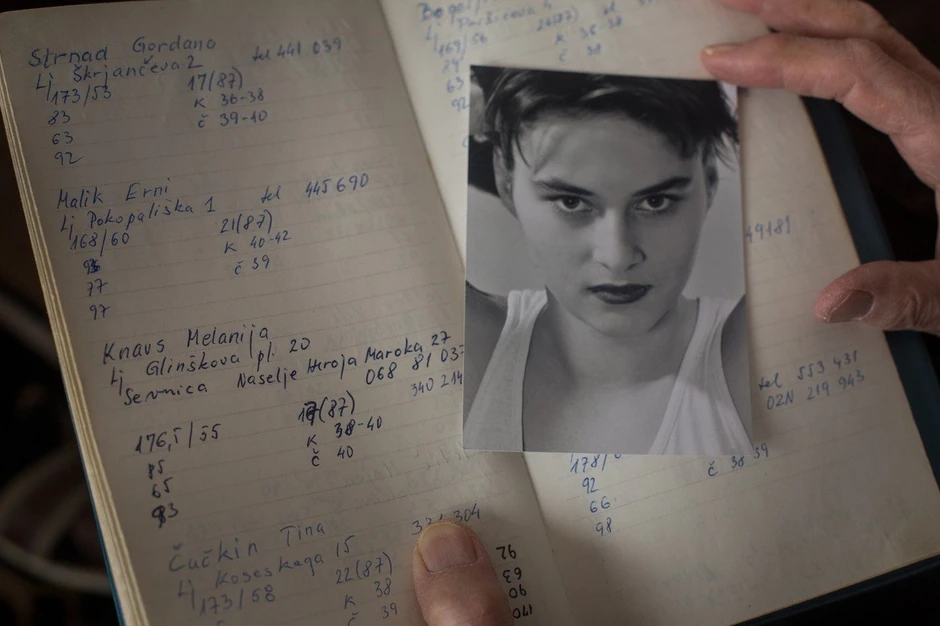 Strnad Gordana
Lj Škrjančeva 2 tel 441 039
173/53 17(87)
83 K 36-38
63 č 39-40
92
Malik Erni
Lj Pokopališka 1 tel 445 690
168/60 21(87)
K 40-42
77 č 39
97
Knaus Melanija
Lj Glinškova pl. 20
Sevnica Naselje Heroja Maroka 27
068 81 03
340 214
176,5/55 (87)
85 K 38-40
65 č 40
93
Čučkin Tina 304
Lj Koseskega 15
173/58 22(87)
K 38
č 39
92
63
90
170
169/56 26(87) tel
K 36-38
63 č 38
92
49181
tel 553 431
02N 219 943
178/
92 č 38 39
66
98